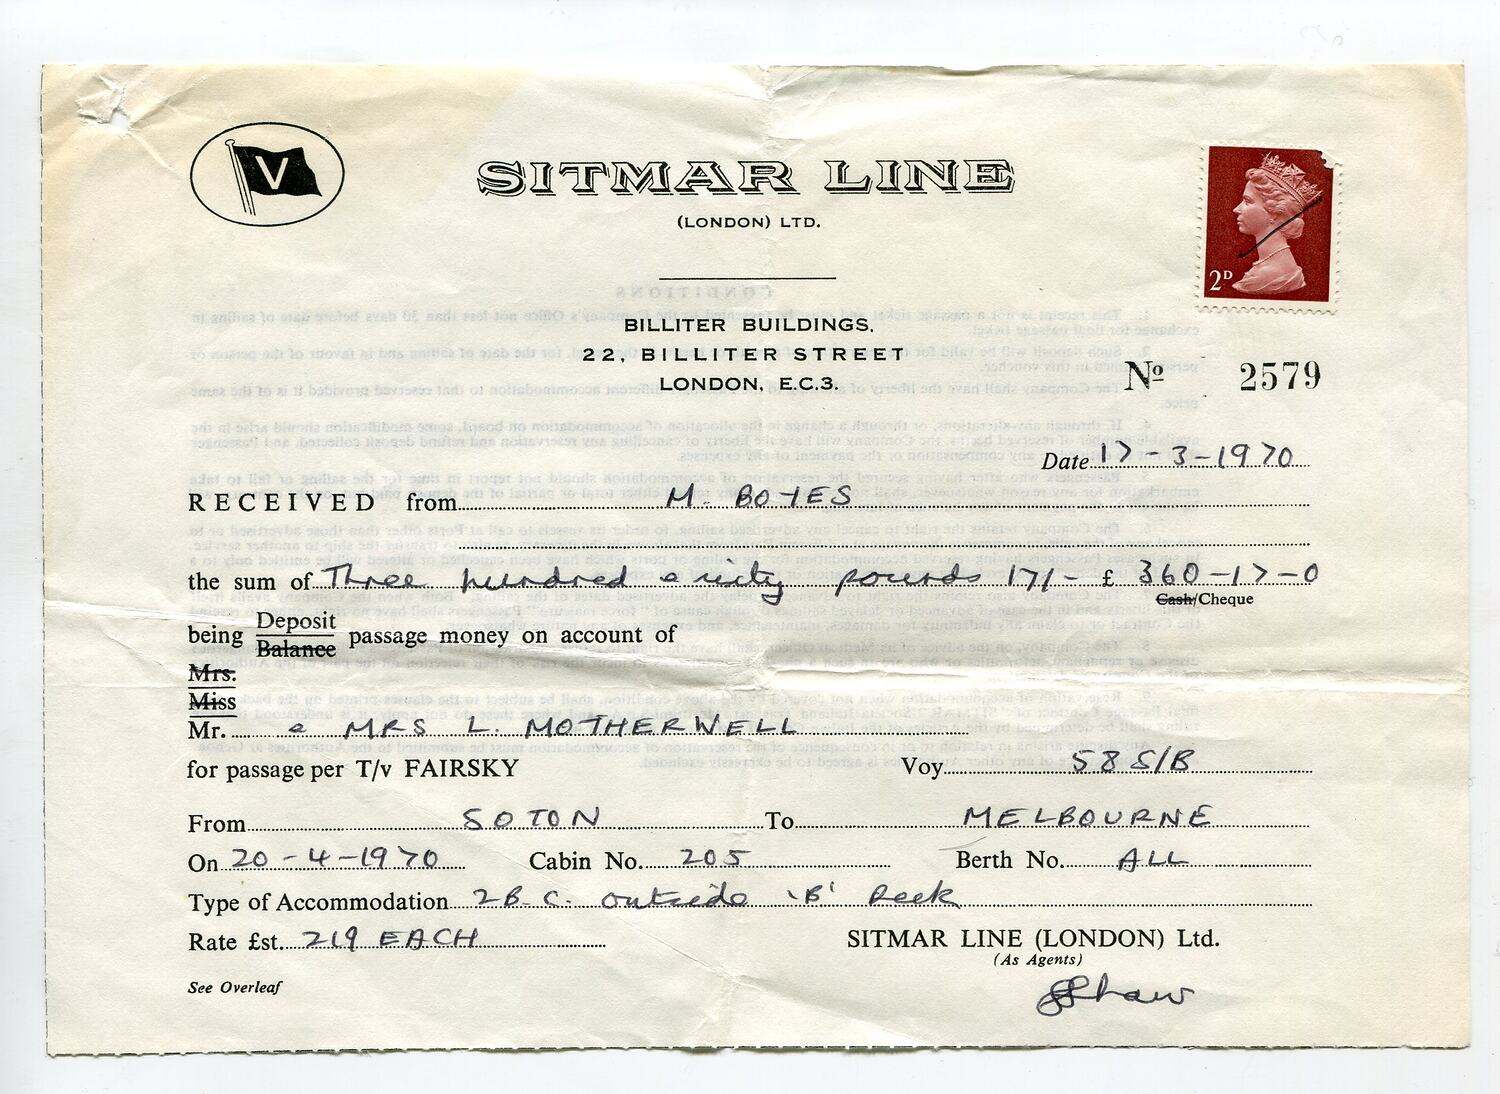 V
SITMAR LINE
(LONDON) LTD.
2D
BILLITER BUILDINGS,
22, BILLITER STREET
LONDON, E.C.3.
No 2579
Date 17-3-1970
RECEIVED from M. BOYES
the sum of Three hundred & sixty pounds 17/- £ 360-17-0
Cash/Cheque
being Deposit
Balance passage money on account of
Mrs.
Miss
Mr. & MRS L. MOTHERWELL
for passage per T/v FAIRSKY Voy. 58 S/B
From SOTON To MELBOURNE
On 20-4-1970 Cabin No. 205 Berth No. ALL
Type of Accommodation 2 B.C. outside 'B' Deck
Rate £st. 219 EACH SITMAR LINE (LONDON) Ltd.
(As Agents)
See Overleaf